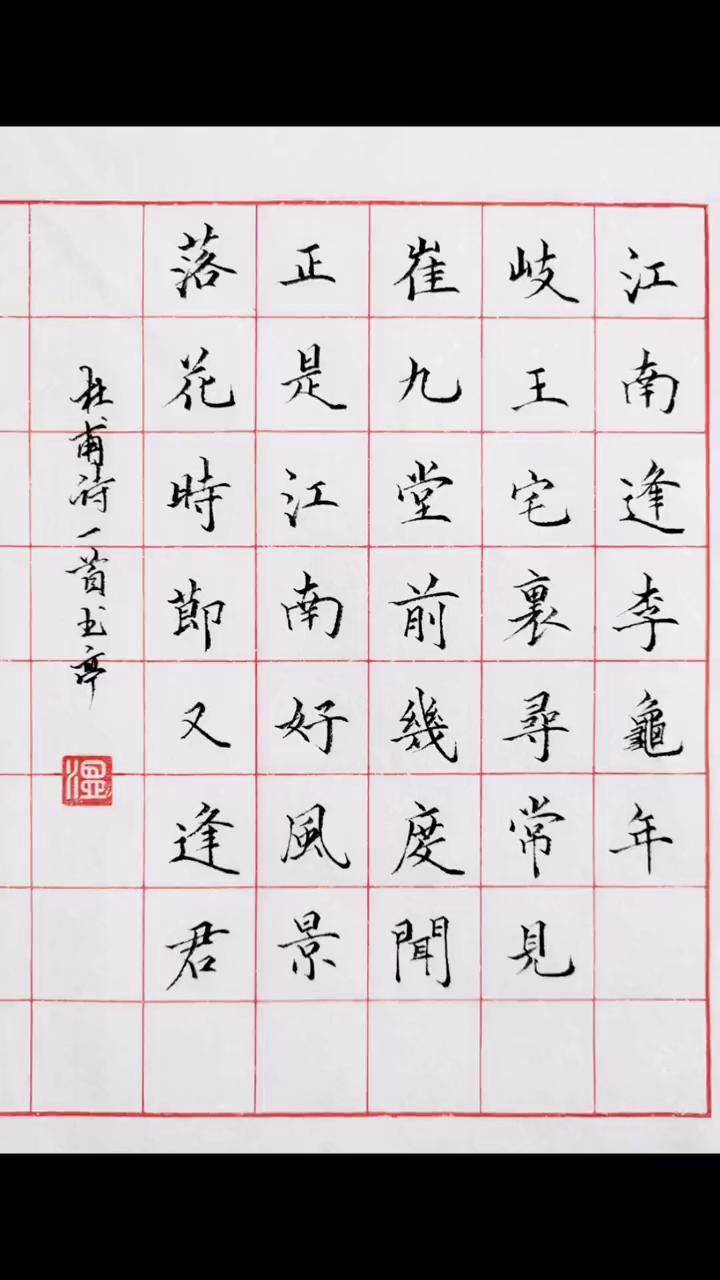 江南逢李龜年
岐王宅裏尋常見
崔九堂前幾度聞
正是江南好風景
落花時節又逢君
杜甫诗一首玉亭
温